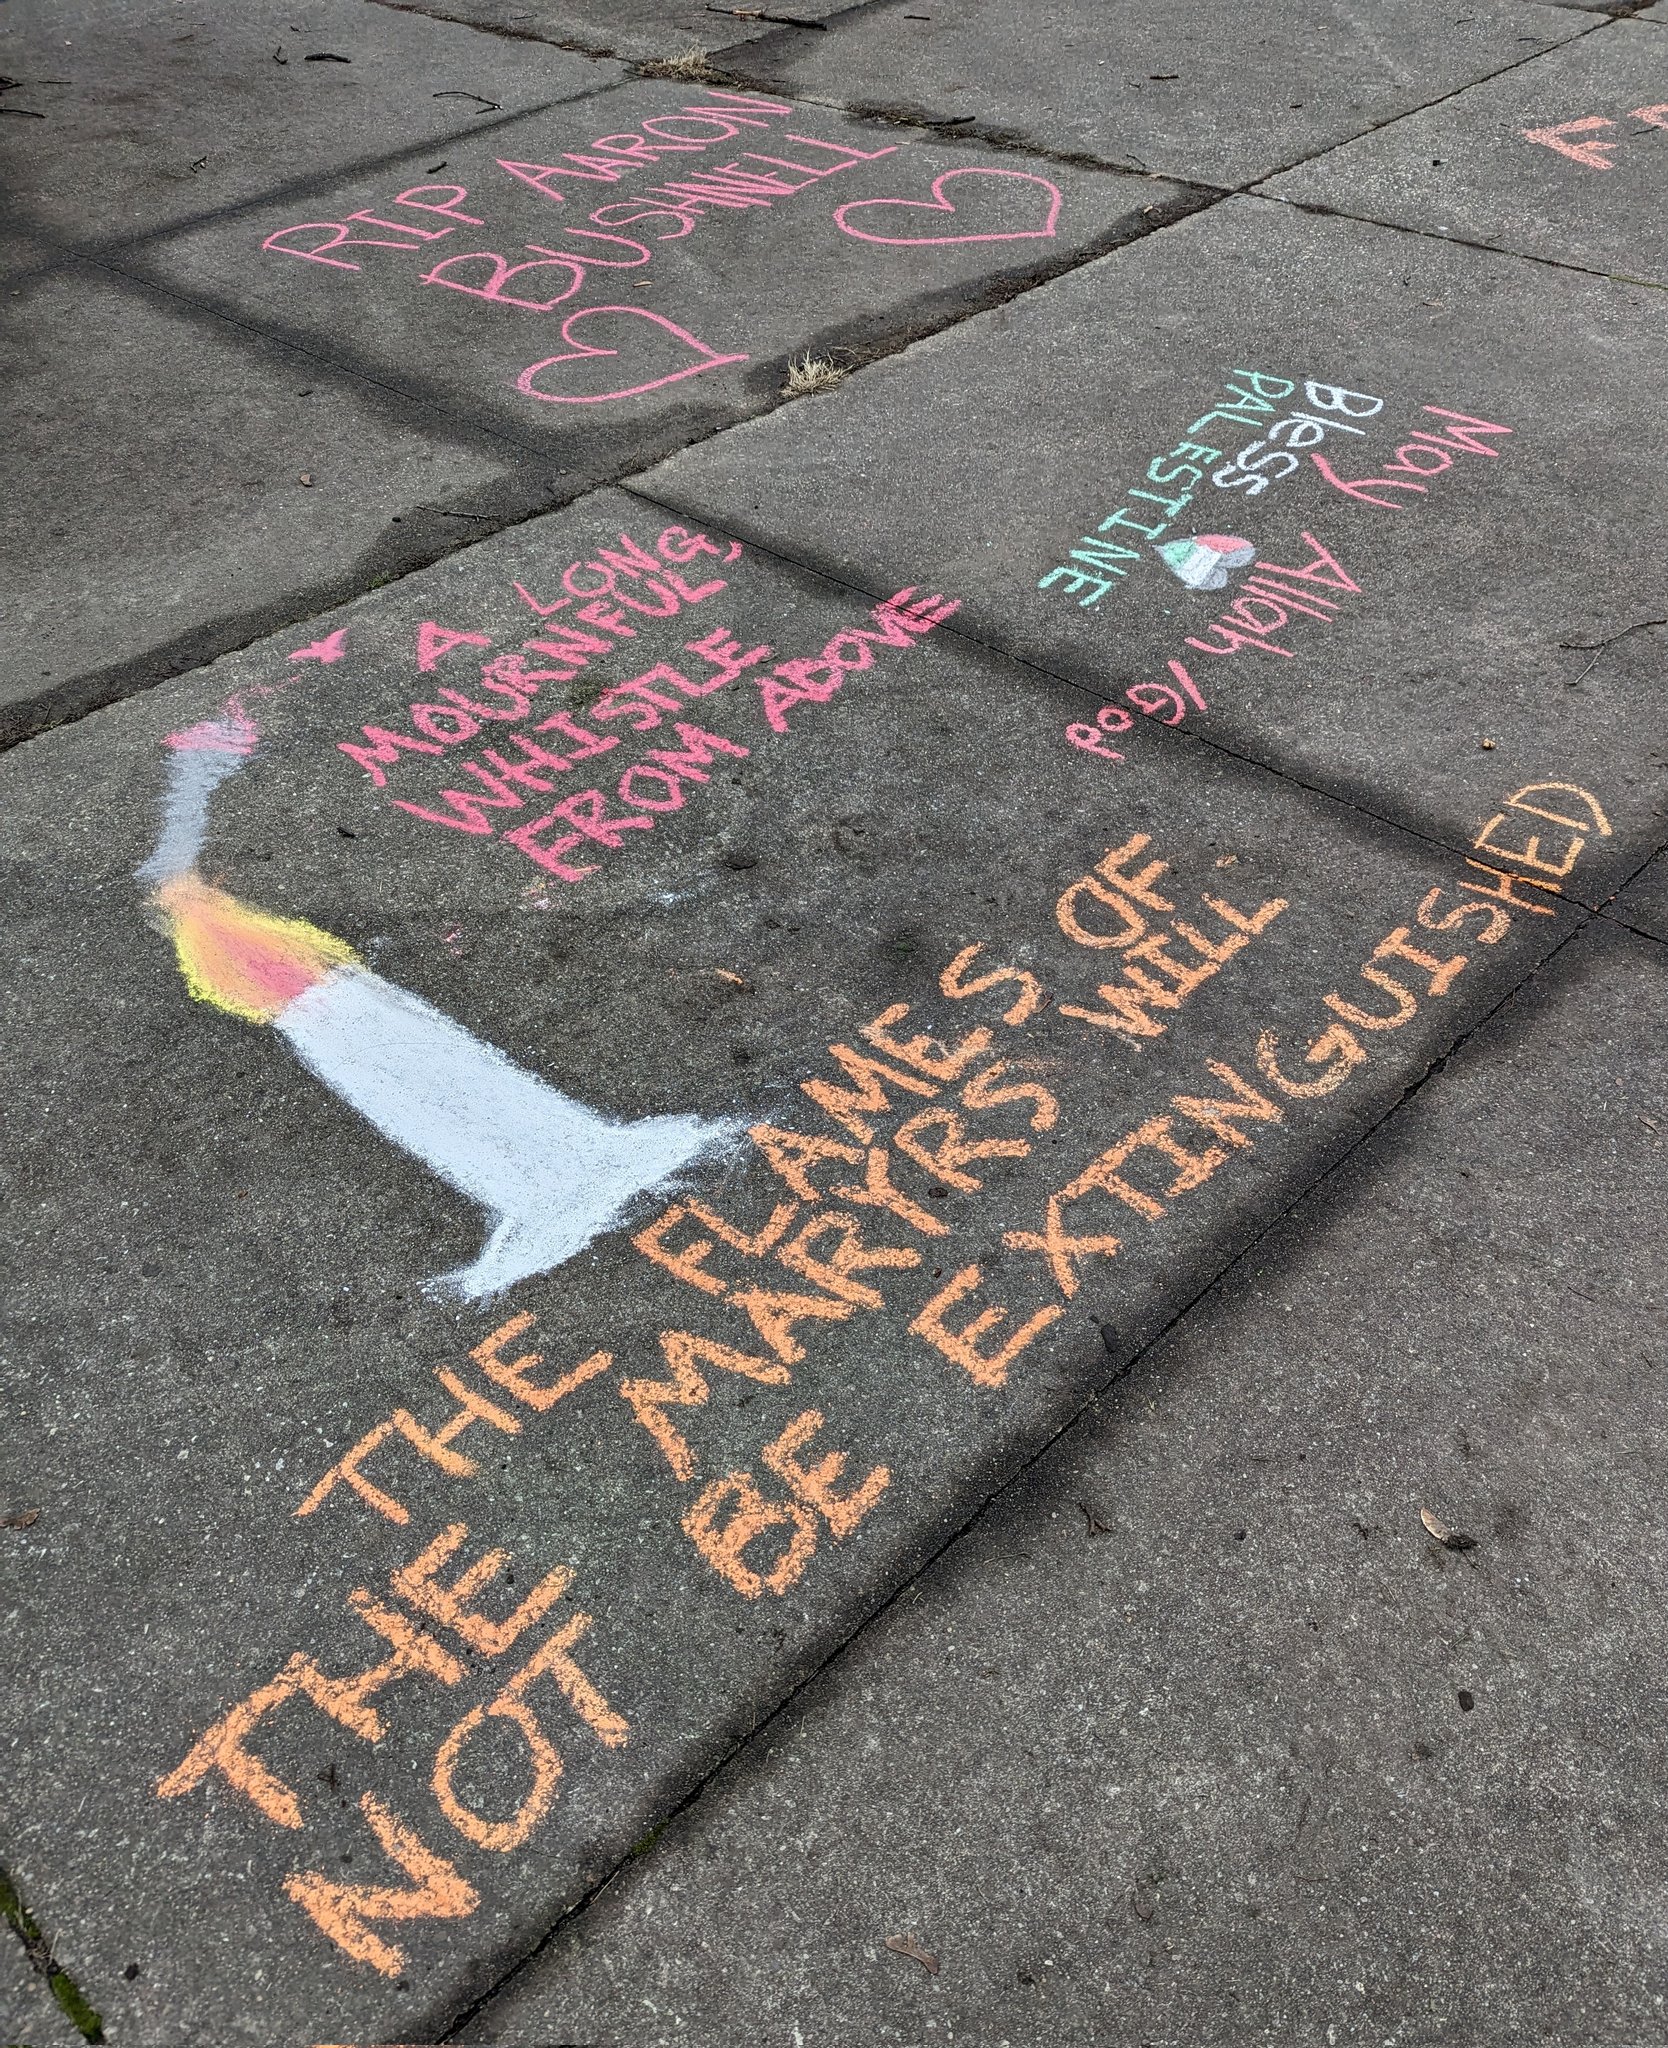 RIP AARON
BUSHNELL
A LONG,
MOURNFUL
WHISTLE
FROM ABOVE
May Allah/God
Bless
PALESTINE
THE FLAMES OF
THE MARYRS WILL
NOT BE EXTINGUISHED